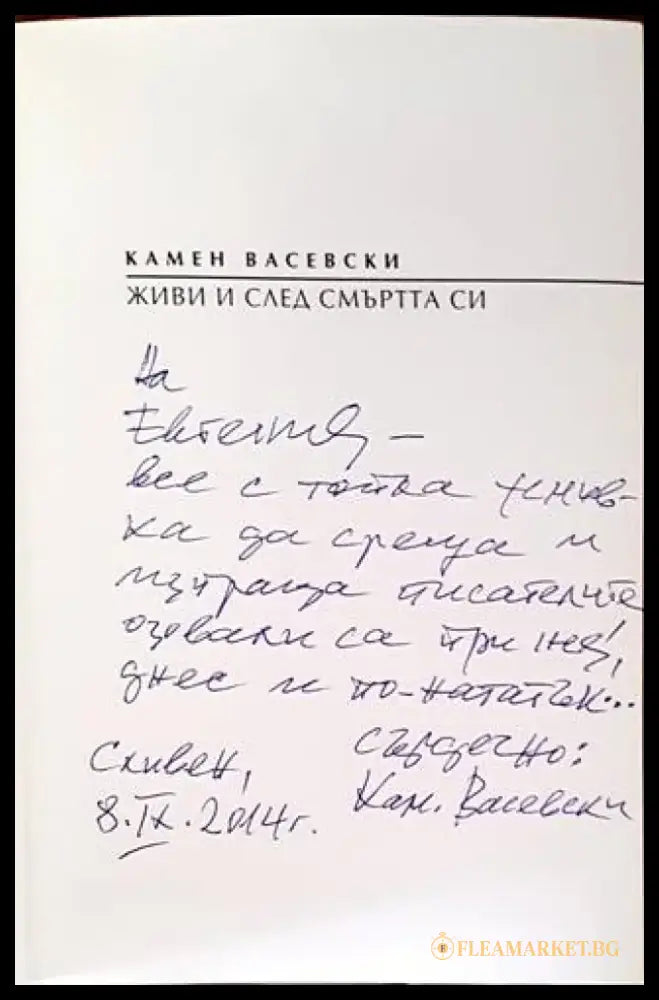 КАМЕН ВАСЕВСКИ
ЖИВИ И СЛЕД СМЪРТТА СИ
На
все с топка
ка да среща и
изпраща писателите
озовали са при нея,
днес и по-нататък...
сърдечно:
Сливен,
Кам. Васевски
8.IX.2014г.
FLEAMARKET.BG